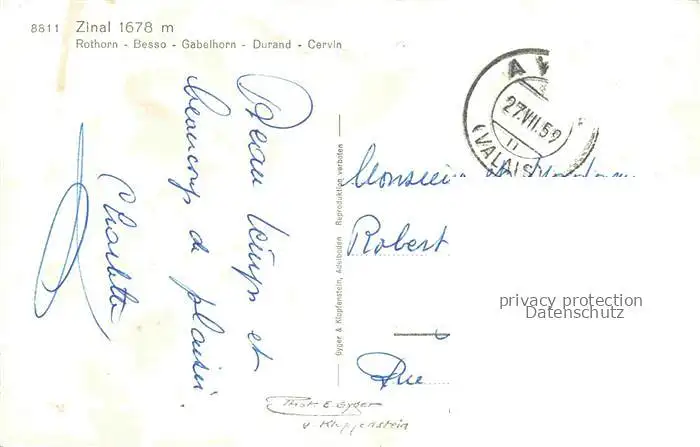 8811 Zinal 1678 m
Rothorn - Besso - Gabelhorn - Durand - Cervin
Beau temps et
beaucoup de plaisir
Charlotte
Gyger & Klopfenstein, Adelboden Reproduktion verboten
27.VII.59
(VALAIS
Monsieur et Madame
Robert
Rue
privacy protection
Datenschutz
Phot. E. Gyger
v. Klopfenstein